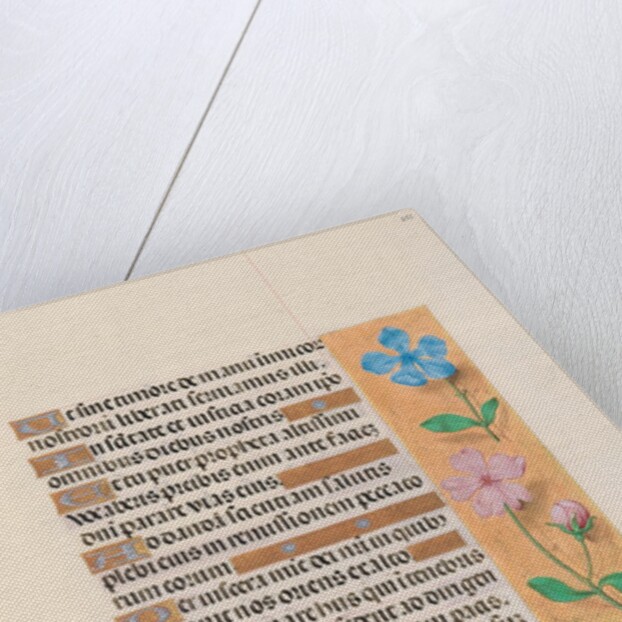 Ut sine timore de manu inimicor
nostrorū liberati seruiamus illi.
In sc̄itate et iusticia coram ip̄o
omnibus diebus nostris
Et tu puer propheta altissimi
vocaberis preibis enim ante faciē
dn̄i parare vias eius
Ad dandā scienciam salutis
plebi eius in remissionem peccato
rum eorum
Per viscera mie dei nr̄i in quib9
nos oriens ex alto
qui in tenebris
pacis.